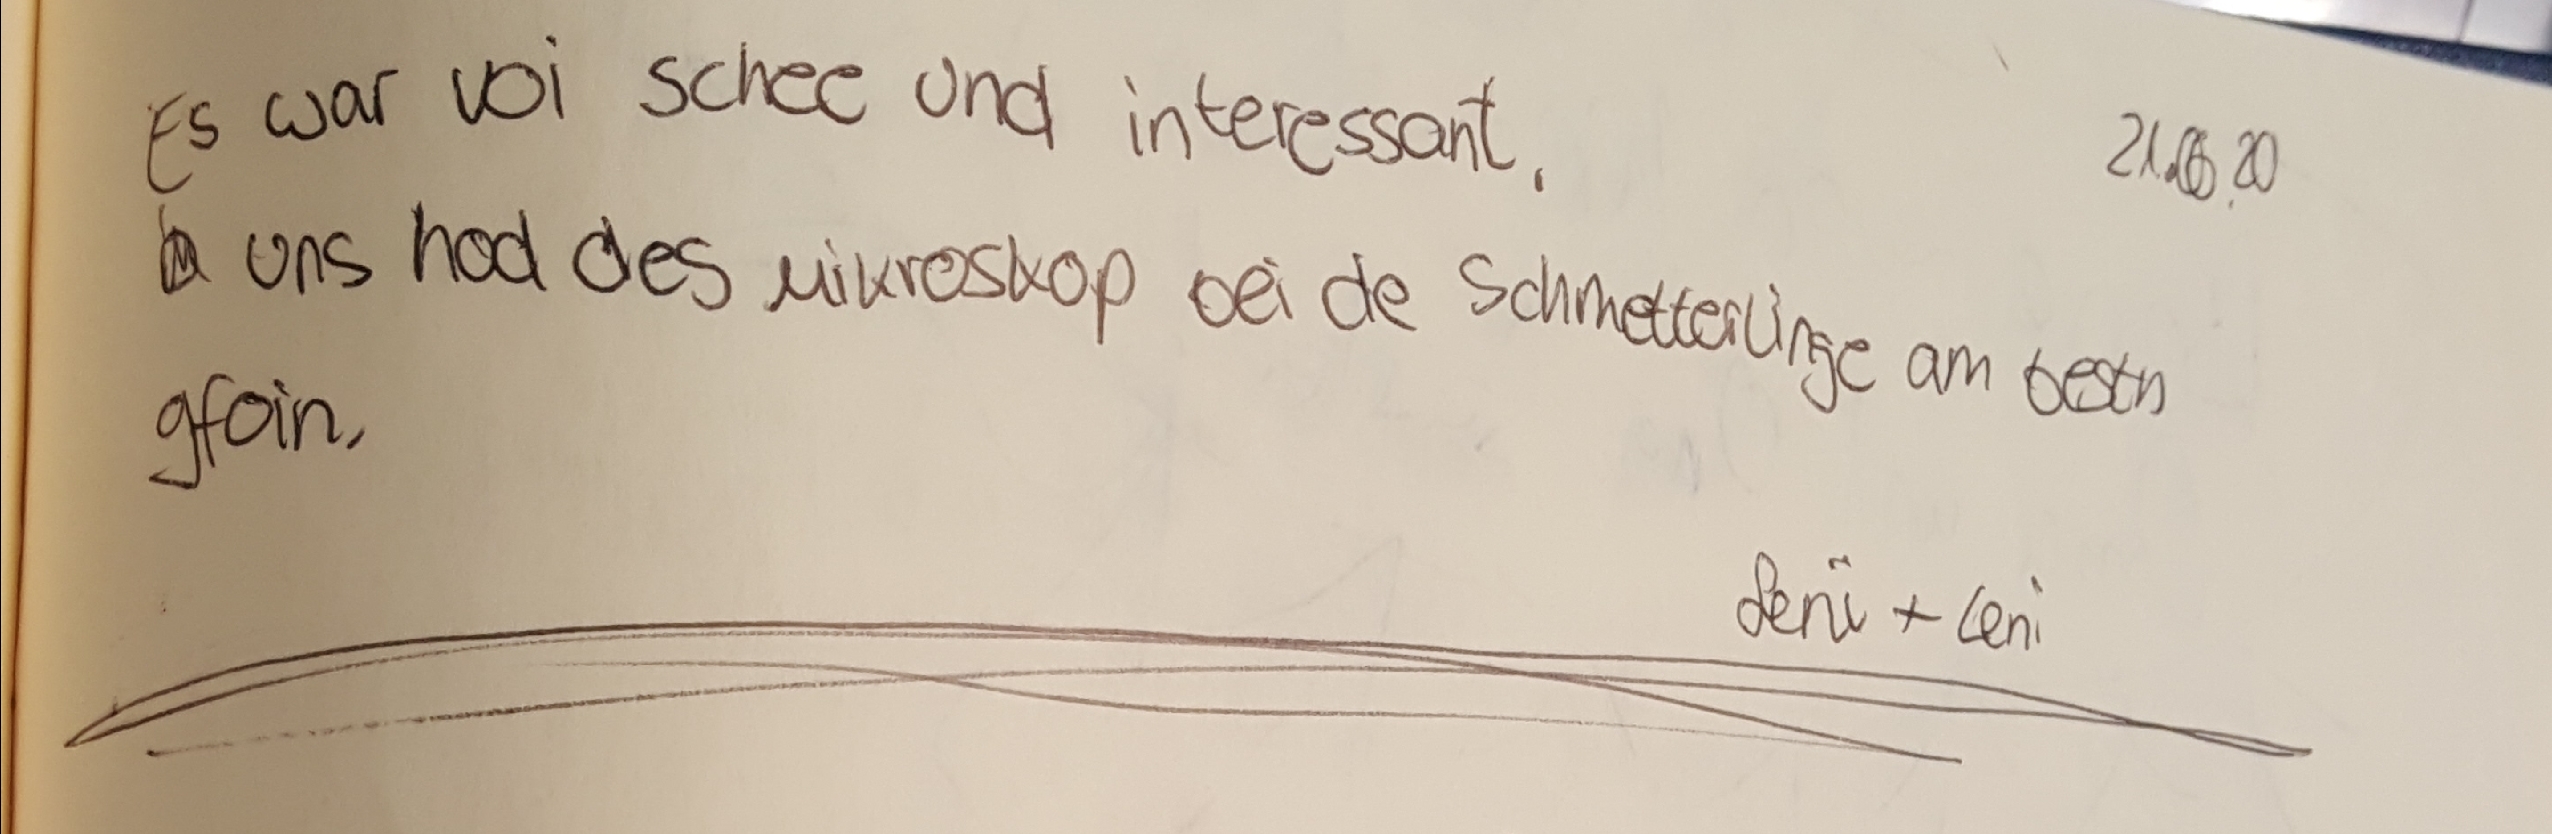 Es war voi schee und interessant. 21.06.20
uns hod des Mikroskop bei de Schmetterlinge am bestn
gfoin.
Leni + Leni